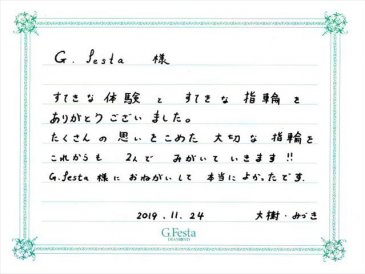 G. festa 様
すてきな体験と すてきな 指輪を
ありがとうございました。
たくさんの思いをこめた 大切な指輪を
これからも 2人で みがいていきます!!
G.festa様に おねがいして 本当に よかったです.
2019.11.24 大樹・みづき
G.Festa
DIAMOND